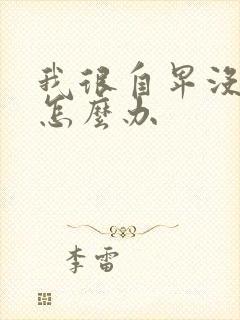 我很自卑没
怎麼办
李雷